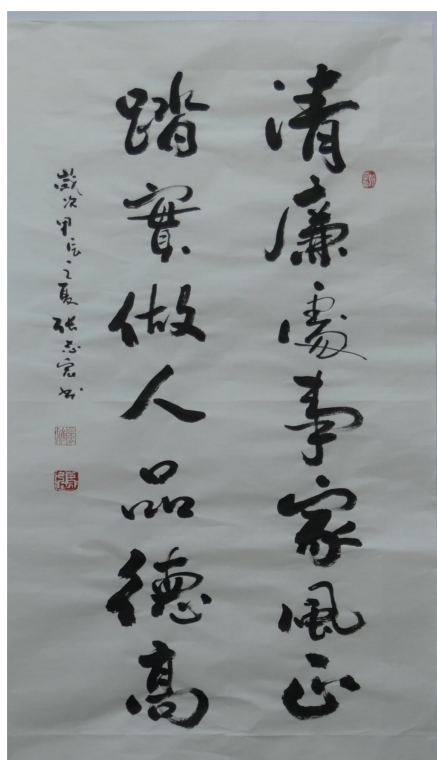 清廉處事家風正
踏實做人品德高
歲次甲辰之夏 張志宏書